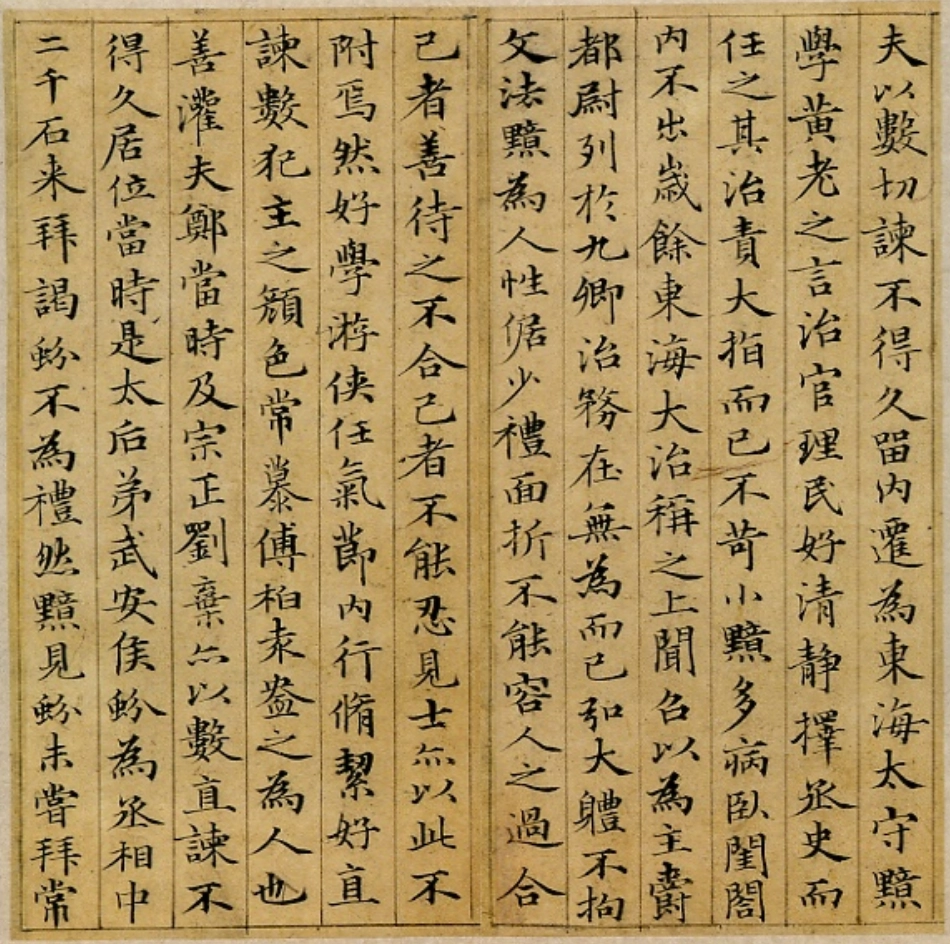 夫以數切諫不得久留內遷為東海太守黯
學黃老之言治官理民好清静擇丞史而
任之其治責大指而已不苛小黯多病臥閨閤
內不出歲餘東海大治稱之上聞召以為主爵
都尉列於九卿治務在無為而已弘大體不拘
文法黯為人性倨少禮面折不能容人之過合
己者善待之不合己者不能忍見士亦以此不
附焉然好學游俠任氣節內行脩絜好直
諫數犯主之顏色常慕傅柏袁盎之為人也
善灌夫鄭當時及宗正劉棄亦以數直諫不
得久居位當時是太后弟武安侯蚡為丞相中
二千石来拜謁蚡不為禮然黯見蚡未嘗拜常